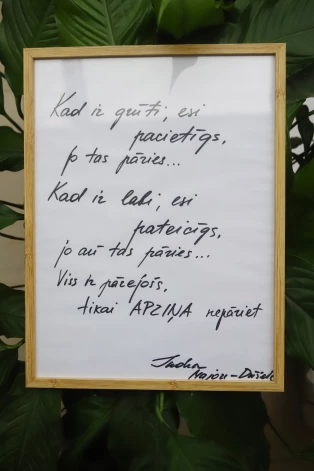 Kad ir grūti, esi
pacietīgs,
jo tas pāries...
Kad ir labi, esi
pateicīgs,
jo arī tas pāries...
Viss ir pārejošs,
tikai APZIŅA nepāriet